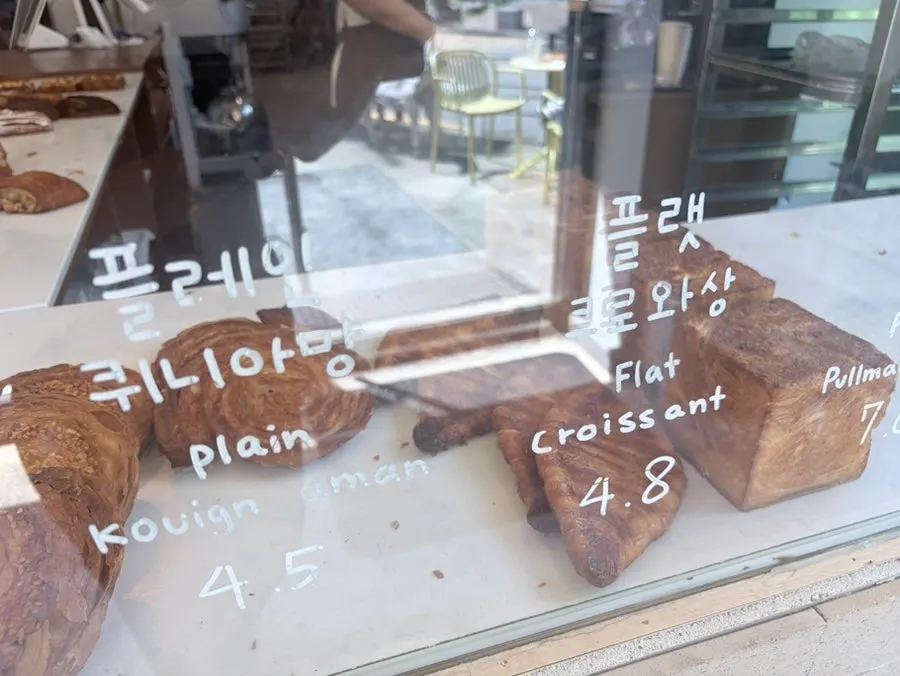 플레인
퀴니아망
plain
kouign aman
4.5
플랫
크로와상
Flat
croissant
4.8